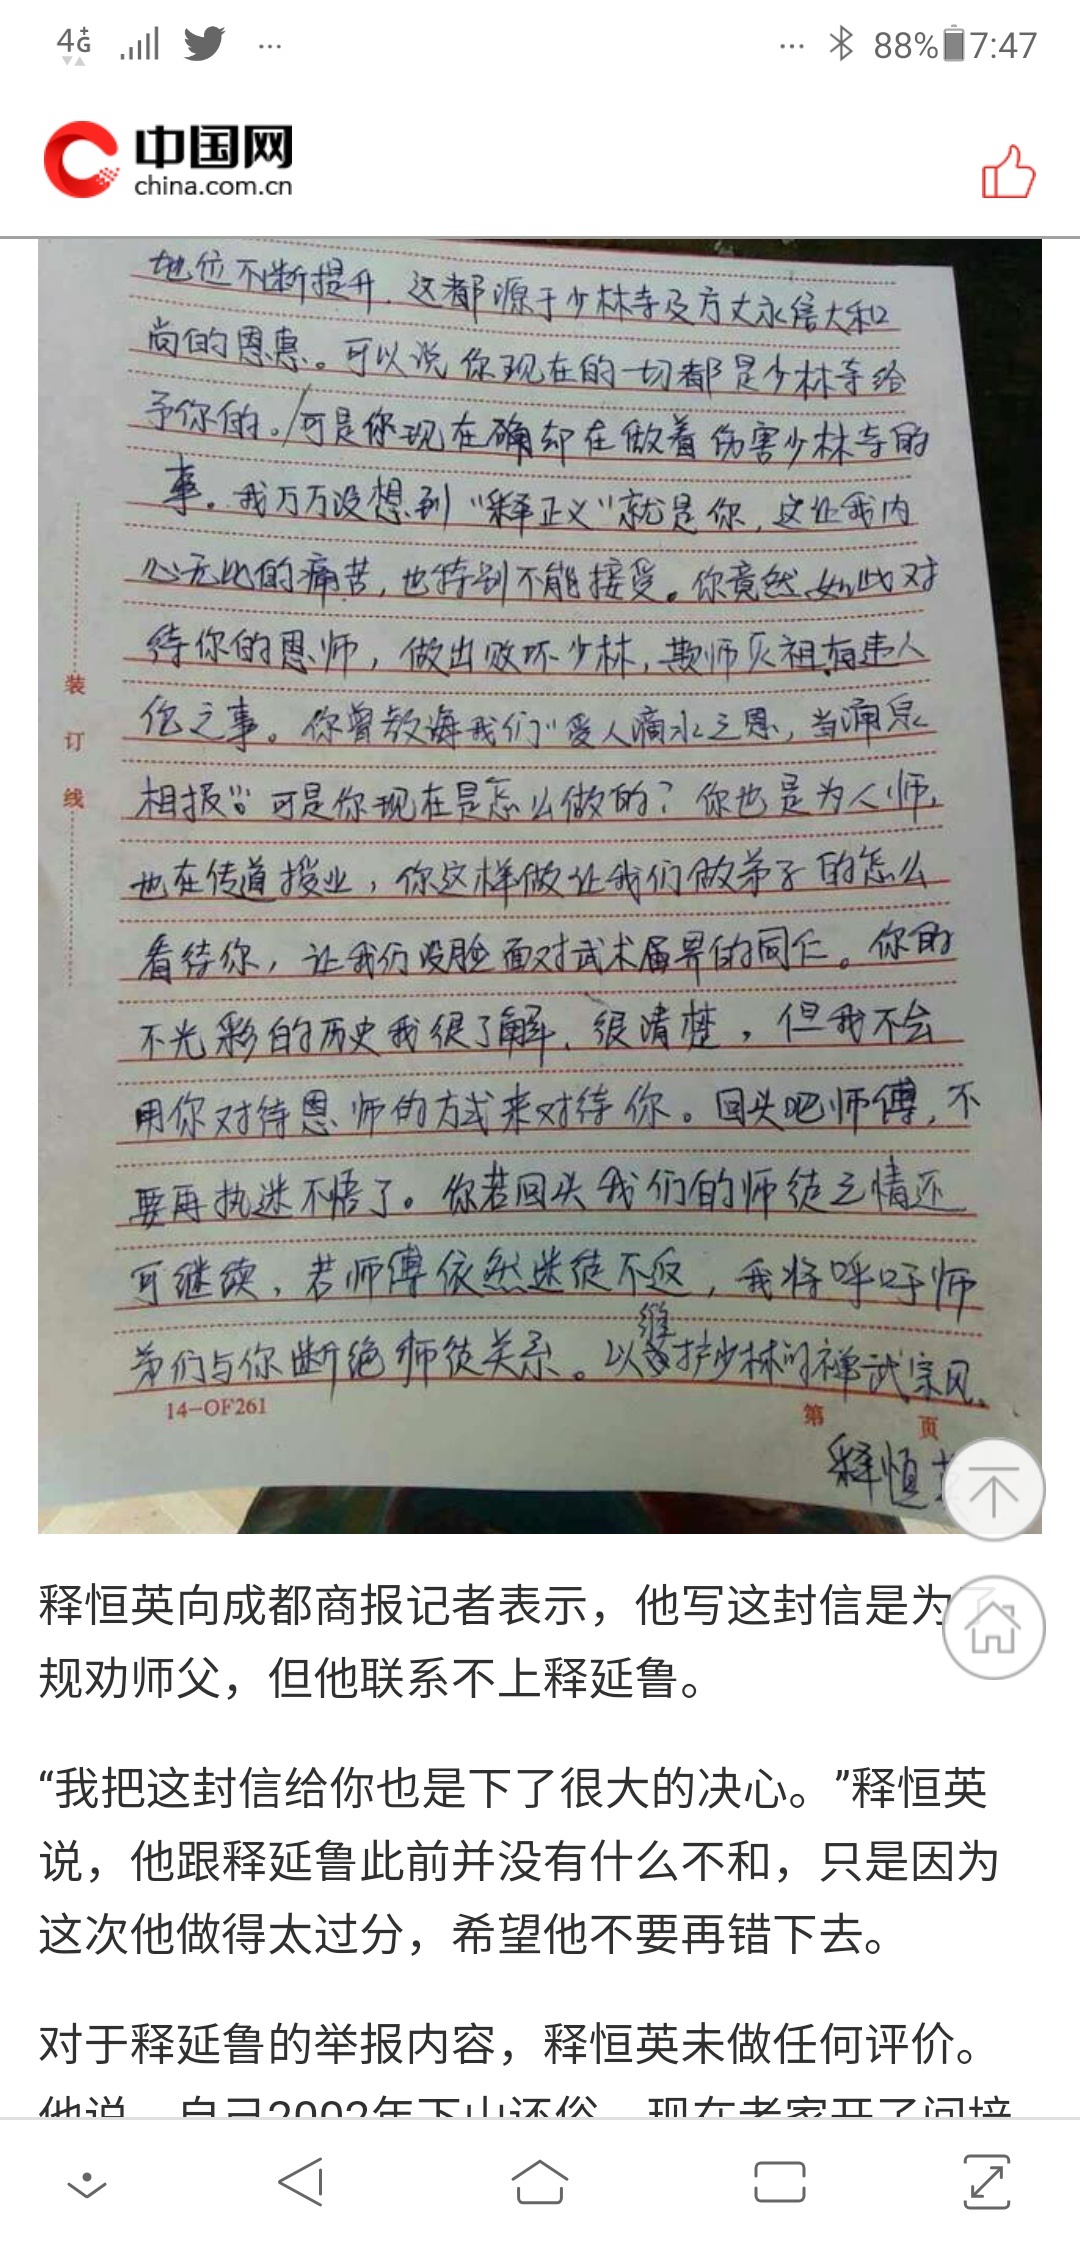 4G+
...
...
88%
7:47
中国网
china.com.cn
地位不断提升.这都源于少林寺及方丈永信大和
尚的恩惠。可以说你现在的一切都是少林寺给
予你的。/可是你现在确却在做着伤害少林寺的
事。我万万没想到“释正义”就是你,这让我内
心无比的痛苦,也特别不能接受。你竟然如此对
待你的恩师,做出败坏少林,欺师灭祖有违人
伦之事。你曾教海我们“受人滴水之恩,当涌泉
相报”。可是你现在是怎么做的?你也是为人师,
也在传道授业,你这样做让我们做弟子的怎么
看待你,让我们没脸面对武术届界的同仁。你的
不光彩的历史我很了解.很清楚,但我不会
用你对待恩师的方式来对待你。回头吧师傅,不
要再执迷不悟了。你若回头我们的师徒之情还
可继续,若师傅依然迷徒不返,我将呼吁师
弟们与你断绝师徒关系。以维护少林的禅武宗风.
装
订
线
14-OF261
第 页
释恒
释恒英向成都商报记者表示，他写这封信是为
规劝师父，但他联系不上释延鲁。
“我把这封信给你也是下了很大的决心。”释恒英
说，他跟释延鲁此前并没有什么不和，只是因为
这次他做得太过分，希望他不要再错下去。
对于释延鲁的举报内容，释恒英未做任何评价。
他说，自己2002年下山还俗，现在老家开了间培